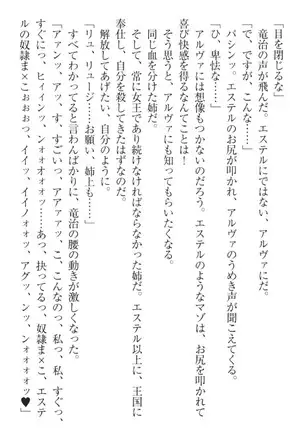 「目を閉じるな」
竜治の声が飛んだ。エステルにではない、アルヴァにだ。
「で、ですが、こんな……」
パシンッ。エステルのお尻が叩かれ、アルヴァのうめき声が聞こえてくる。
「ひ、卑怯な……」
アルヴァには想像もつかないのだろう。エステルのようなマゾは、お尻を叩かれて
喜び快感を得るなんてことは！
そう思うと、アルヴァにも知ってもらいたくなる。
同じ血を分けた姉だ。
そして、常に女王であり続けなければならなかった姉だ。エステル以上に、王国に
奉仕し、自分を殺してきたはずなのだ。
解放してあげたい、自分のように。
「リュ、リュージ……お願い、姉上も……」
すべてわかってると言わんばかりに、竜治の腰の動きが激しくなった。
「アァンッ、アッ、す、すごいっ、アアァァッ、こ、こんなのっ、私っ、私、すぐっ、
すぐにっ、ヒィィンッ、ンォオオオッ……あっ、抉ってるっ、奴隷ま×こ、エステ
ルの奴隷ま×こぉおぉっ、イイッ、イイノォォッ、アグッ、ンッ、ンォオオオッ♥